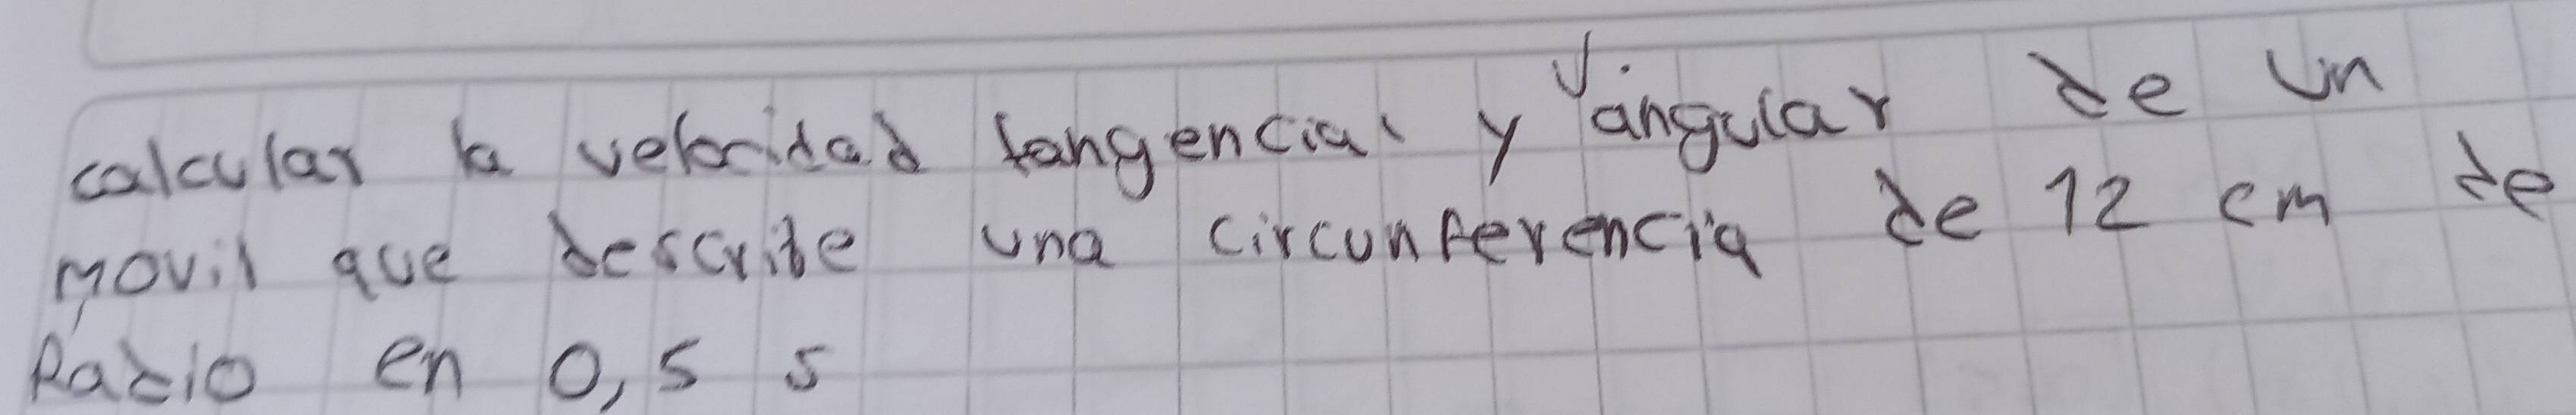 calcular la velocidad tangencial y V. angular de un
movil que describe una circunferencia de 12 cm de
Radio en 0,5 s